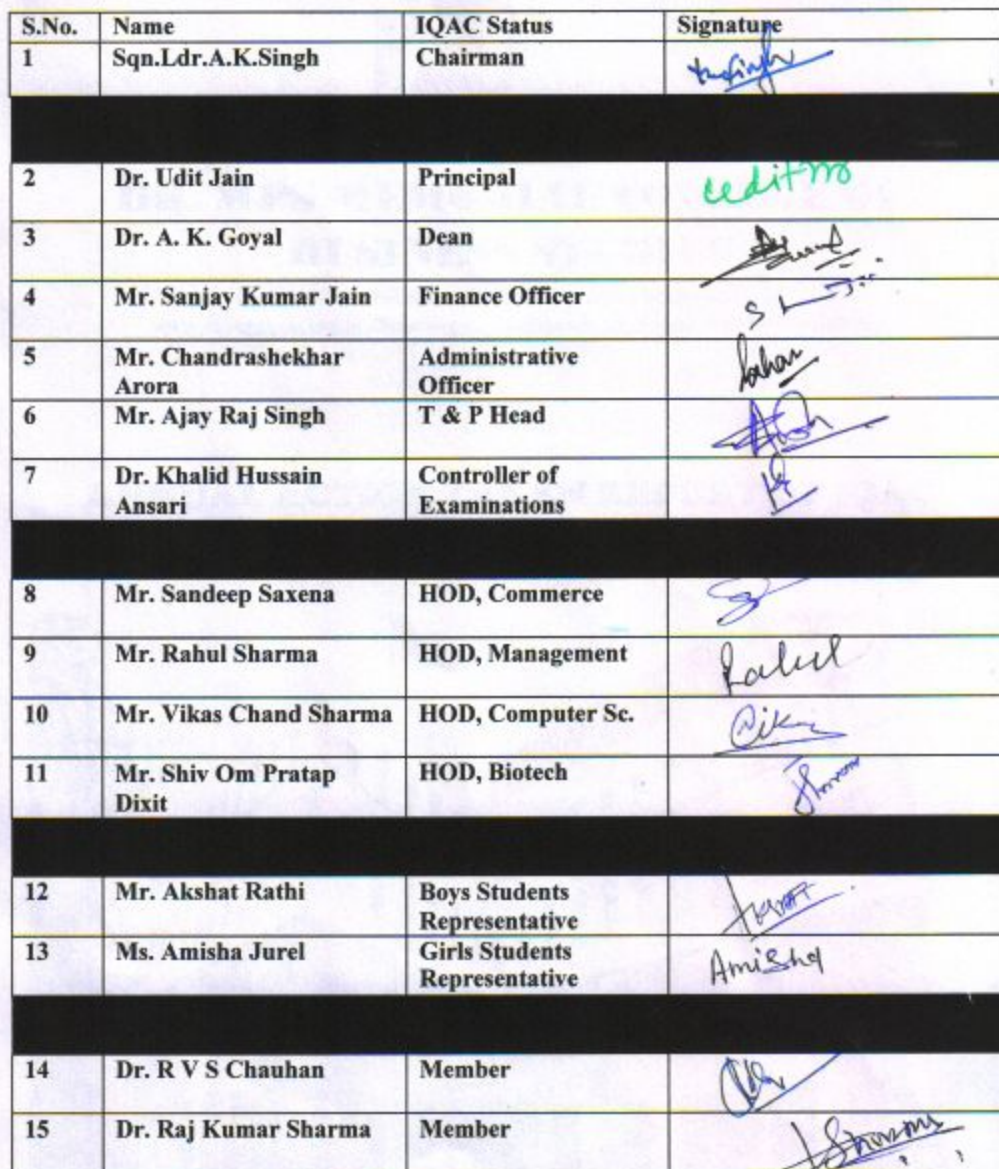 S.No. Name IQAC Status Signature
1 Sqn.Ldr.A.K.Singh Chairman
2 Dr. Udit Jain Principal
3 Dr. A. K. Goyal Dean
4 Mr. Sanjay Kumar Jain Finance Officer
5 Mr. Chandrashekhar Administrative
Arora Officer
6 Mr. Ajay Raj Singh T & P Head
7 Dr. Khalid Hussain Controller of
Ansari Examinations
8 Mr. Sandeep Saxena HOD, Commerce
9 Mr. Rahul Sharma HOD, Management Rahul
10 Mr. Vikas Chand Sharma HOD, Computer Sc.
11 Mr. Shiv Om Pratap HOD, Biotech
Dixit
12 Mr. Akshat Rathi Boys Students
Representative
13 Ms. Amisha Jurel Girls Students Amisha
Representative
14 Dr. R V S Chauhan Member
15 Dr. Raj Kumar Sharma Member